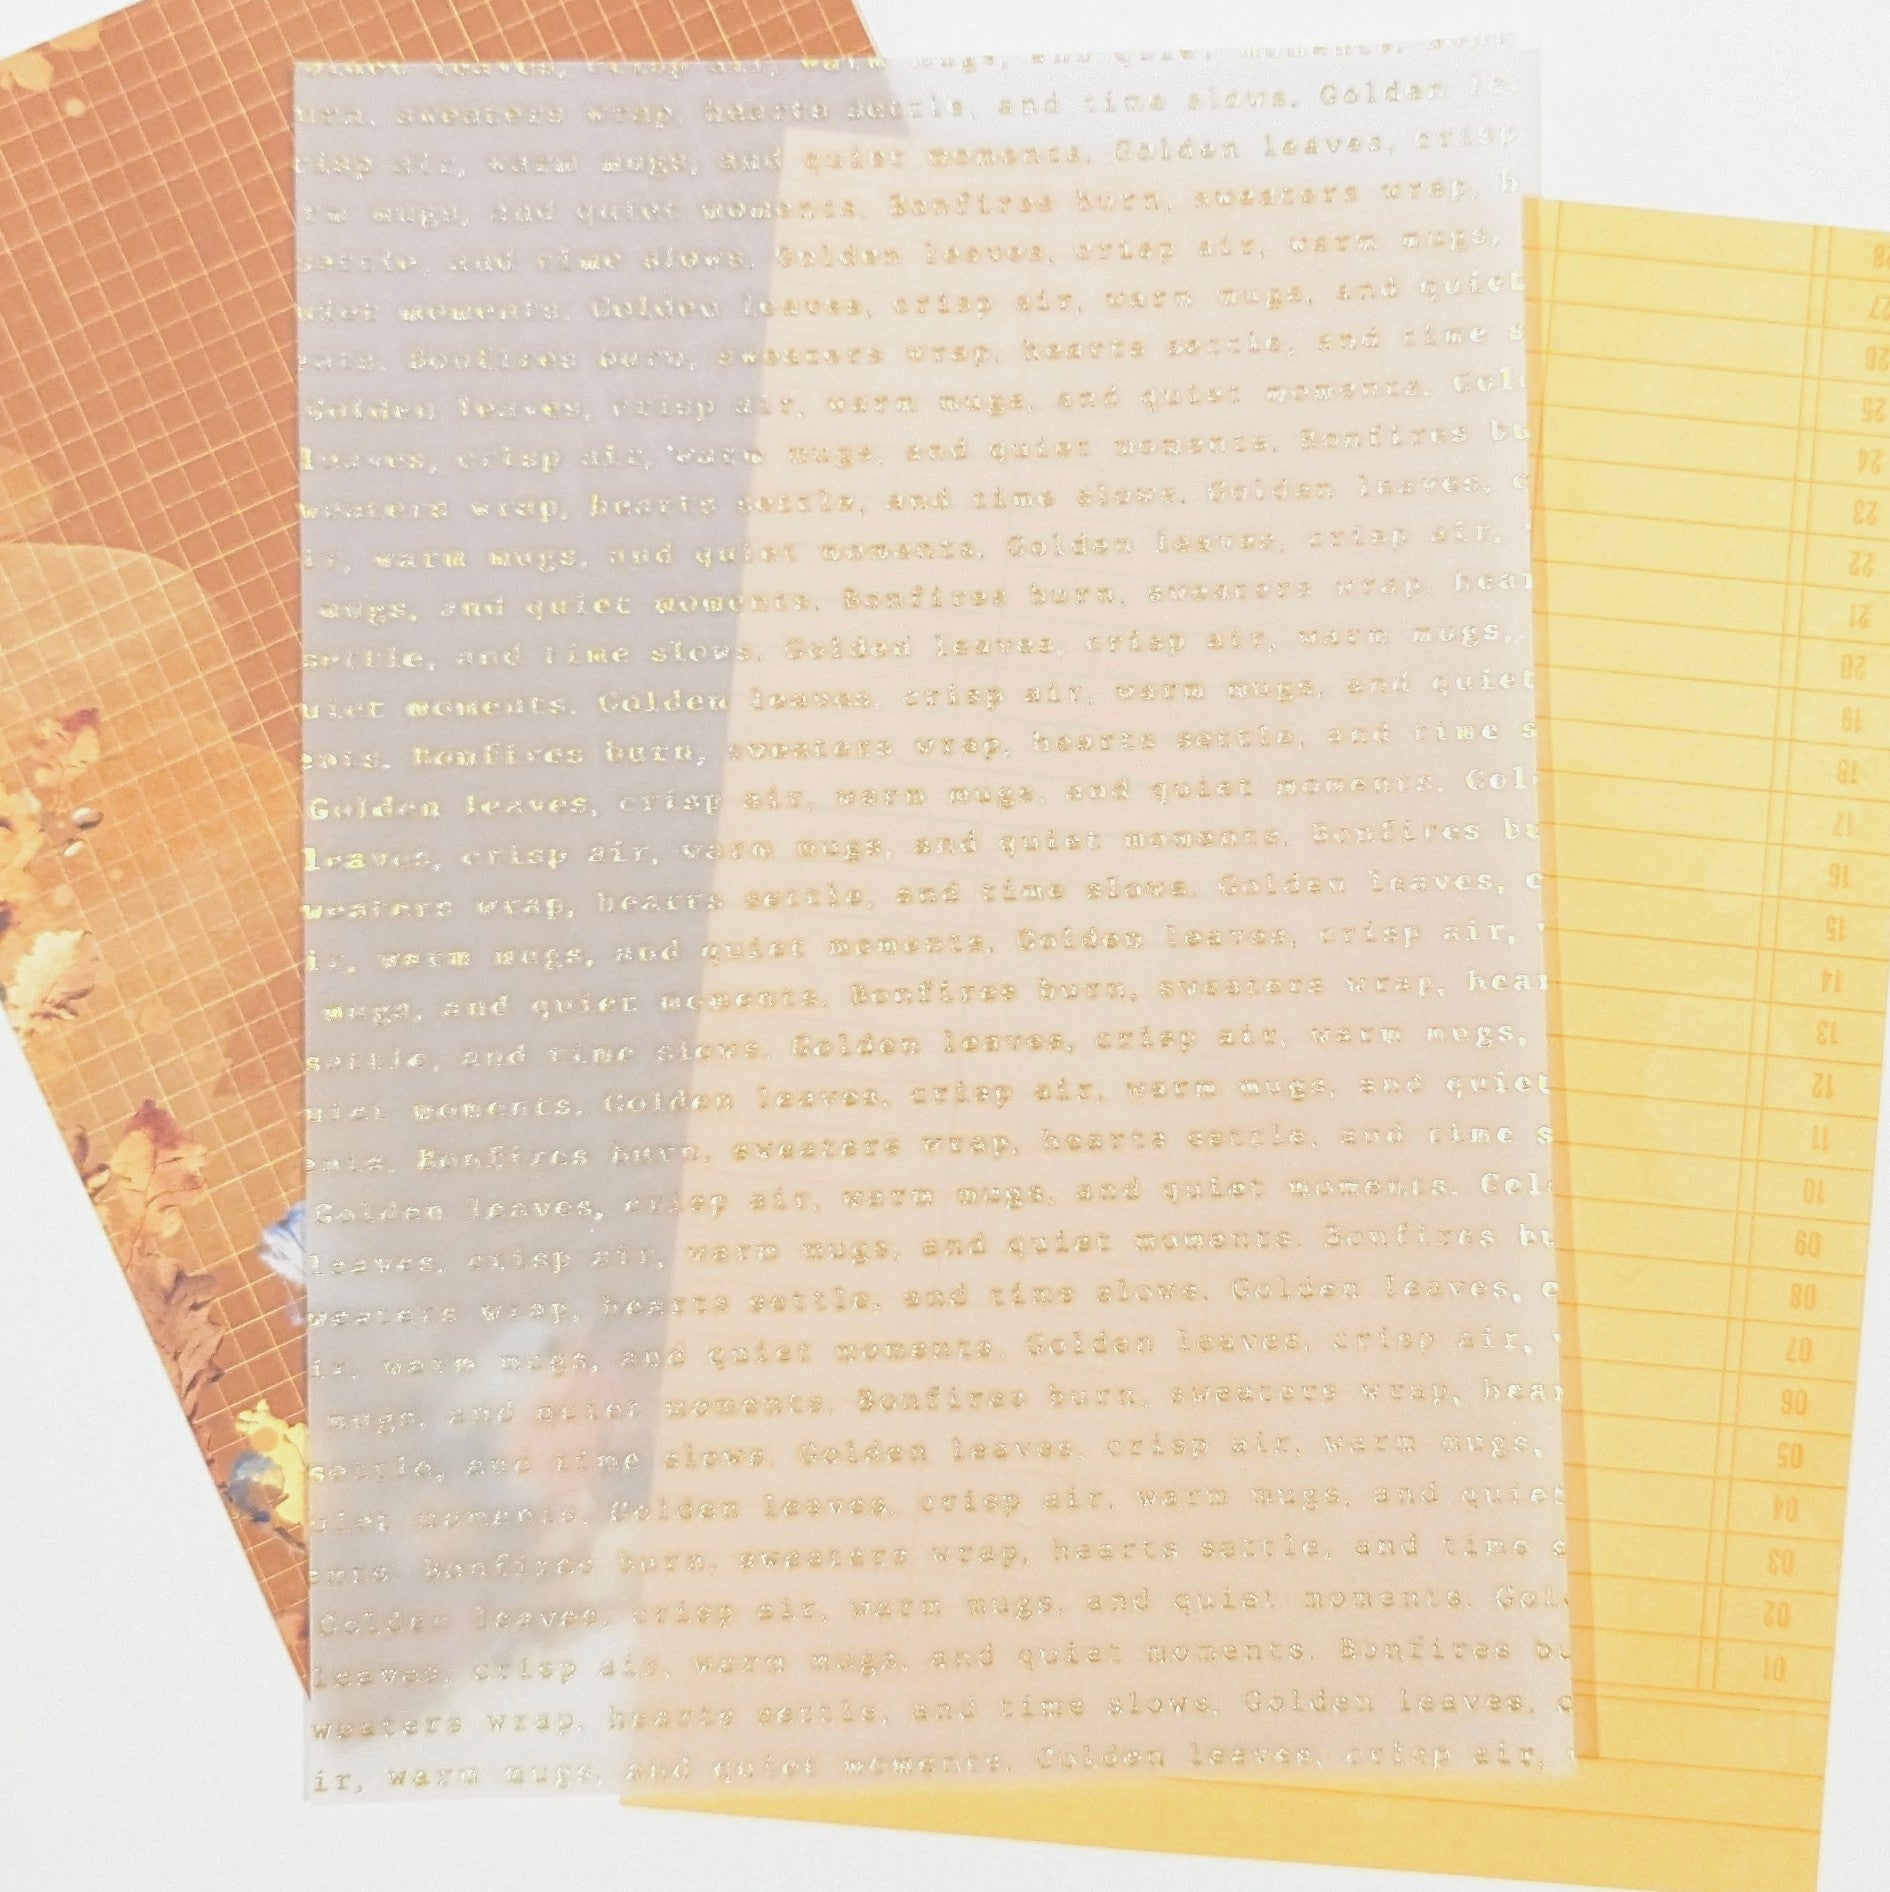 leaves, crisp air, warm mugs, and quiet moments.
urn, sweaters wrap, hearts settle, and time slows. Golden le
crisp air, warm mugs, and quiet moments. Golden leaves, crisp
rm mugs, and quiet moments. Bonfires burn, sweaters wrap, h
settle, and time slows. Golden leaves, crisp air, warm mugs,
uiet moments. Golden leaves, crisp air, warm mugs, and quiet
ents. Bonfires burn, sweaters wrap, hearts settle, and time s
Golden leaves, crisp air, warm mugs, and quiet moments. Gol
leaves, crisp air, warm mugs, and quiet moments. Bonfires bu
weaters wrap, hearts settle, and time slows. Golden leaves, c
ir, warm mugs, and quiet moments. Golden leaves, crisp air,
mugs, and quiet moments. Bonfires burn, sweaters wrap, hear
settle, and time slows. Golden leaves, crisp air, warm mugs,
uiet moments. Golden leaves, crisp air, warm mugs, and quiet
ents. Bonfires burn, sweaters wrap, hearts settle, and time s
Golden leaves, crisp air, warm mugs, and quiet moments. Gol
leaves, crisp air, warm mugs, and quiet moments. Bonfires bu
weaters wrap, hearts settle, and time slows. Golden leaves, c
ir, warm mugs, and quiet moments. Golden leaves, crisp air,
mugs, and quiet moments. Bonfires burn, sweaters wrap, hear
settle, and time slows. Golden leaves, crisp air, warm mugs,
uiet moments. Golden leaves, crisp air, warm mugs, and quiet
ents. Bonfires burn, sweaters wrap, hearts settle, and time s
Golden leaves, crisp air, warm mugs, and quiet moments. Gol
leaves, crisp air, warm mugs, and quiet moments. Bonfires bu
weaters wrap, hearts settle, and time slows. Golden leaves, c
ir, warm mugs, and quiet moments. Golden leaves, crisp air,
mugs, and quiet moments. Bonfires burn, sweaters wrap, hear
settle, and time slows. Golden leaves, crisp air, warm mugs,
uiet moments. Golden leaves, crisp air, warm mugs, and quiet
ents. Bonfires burn, sweaters wrap, hearts settle, and time s
Golden leaves, crisp air, warm mugs, and quiet moments. Gol
leaves, crisp air, warm mugs, and quiet moments. Bonfires bu
weaters wrap, hearts settle, and time slows. Golden leaves, c
ir, warm mugs, and quiet moments. Golden leaves, crisp air,
28
27
26
25
24
23
22
21
20
19
18
17
16
15
14
13
12
11
10
09
08
07
06
05
04
03
02
01